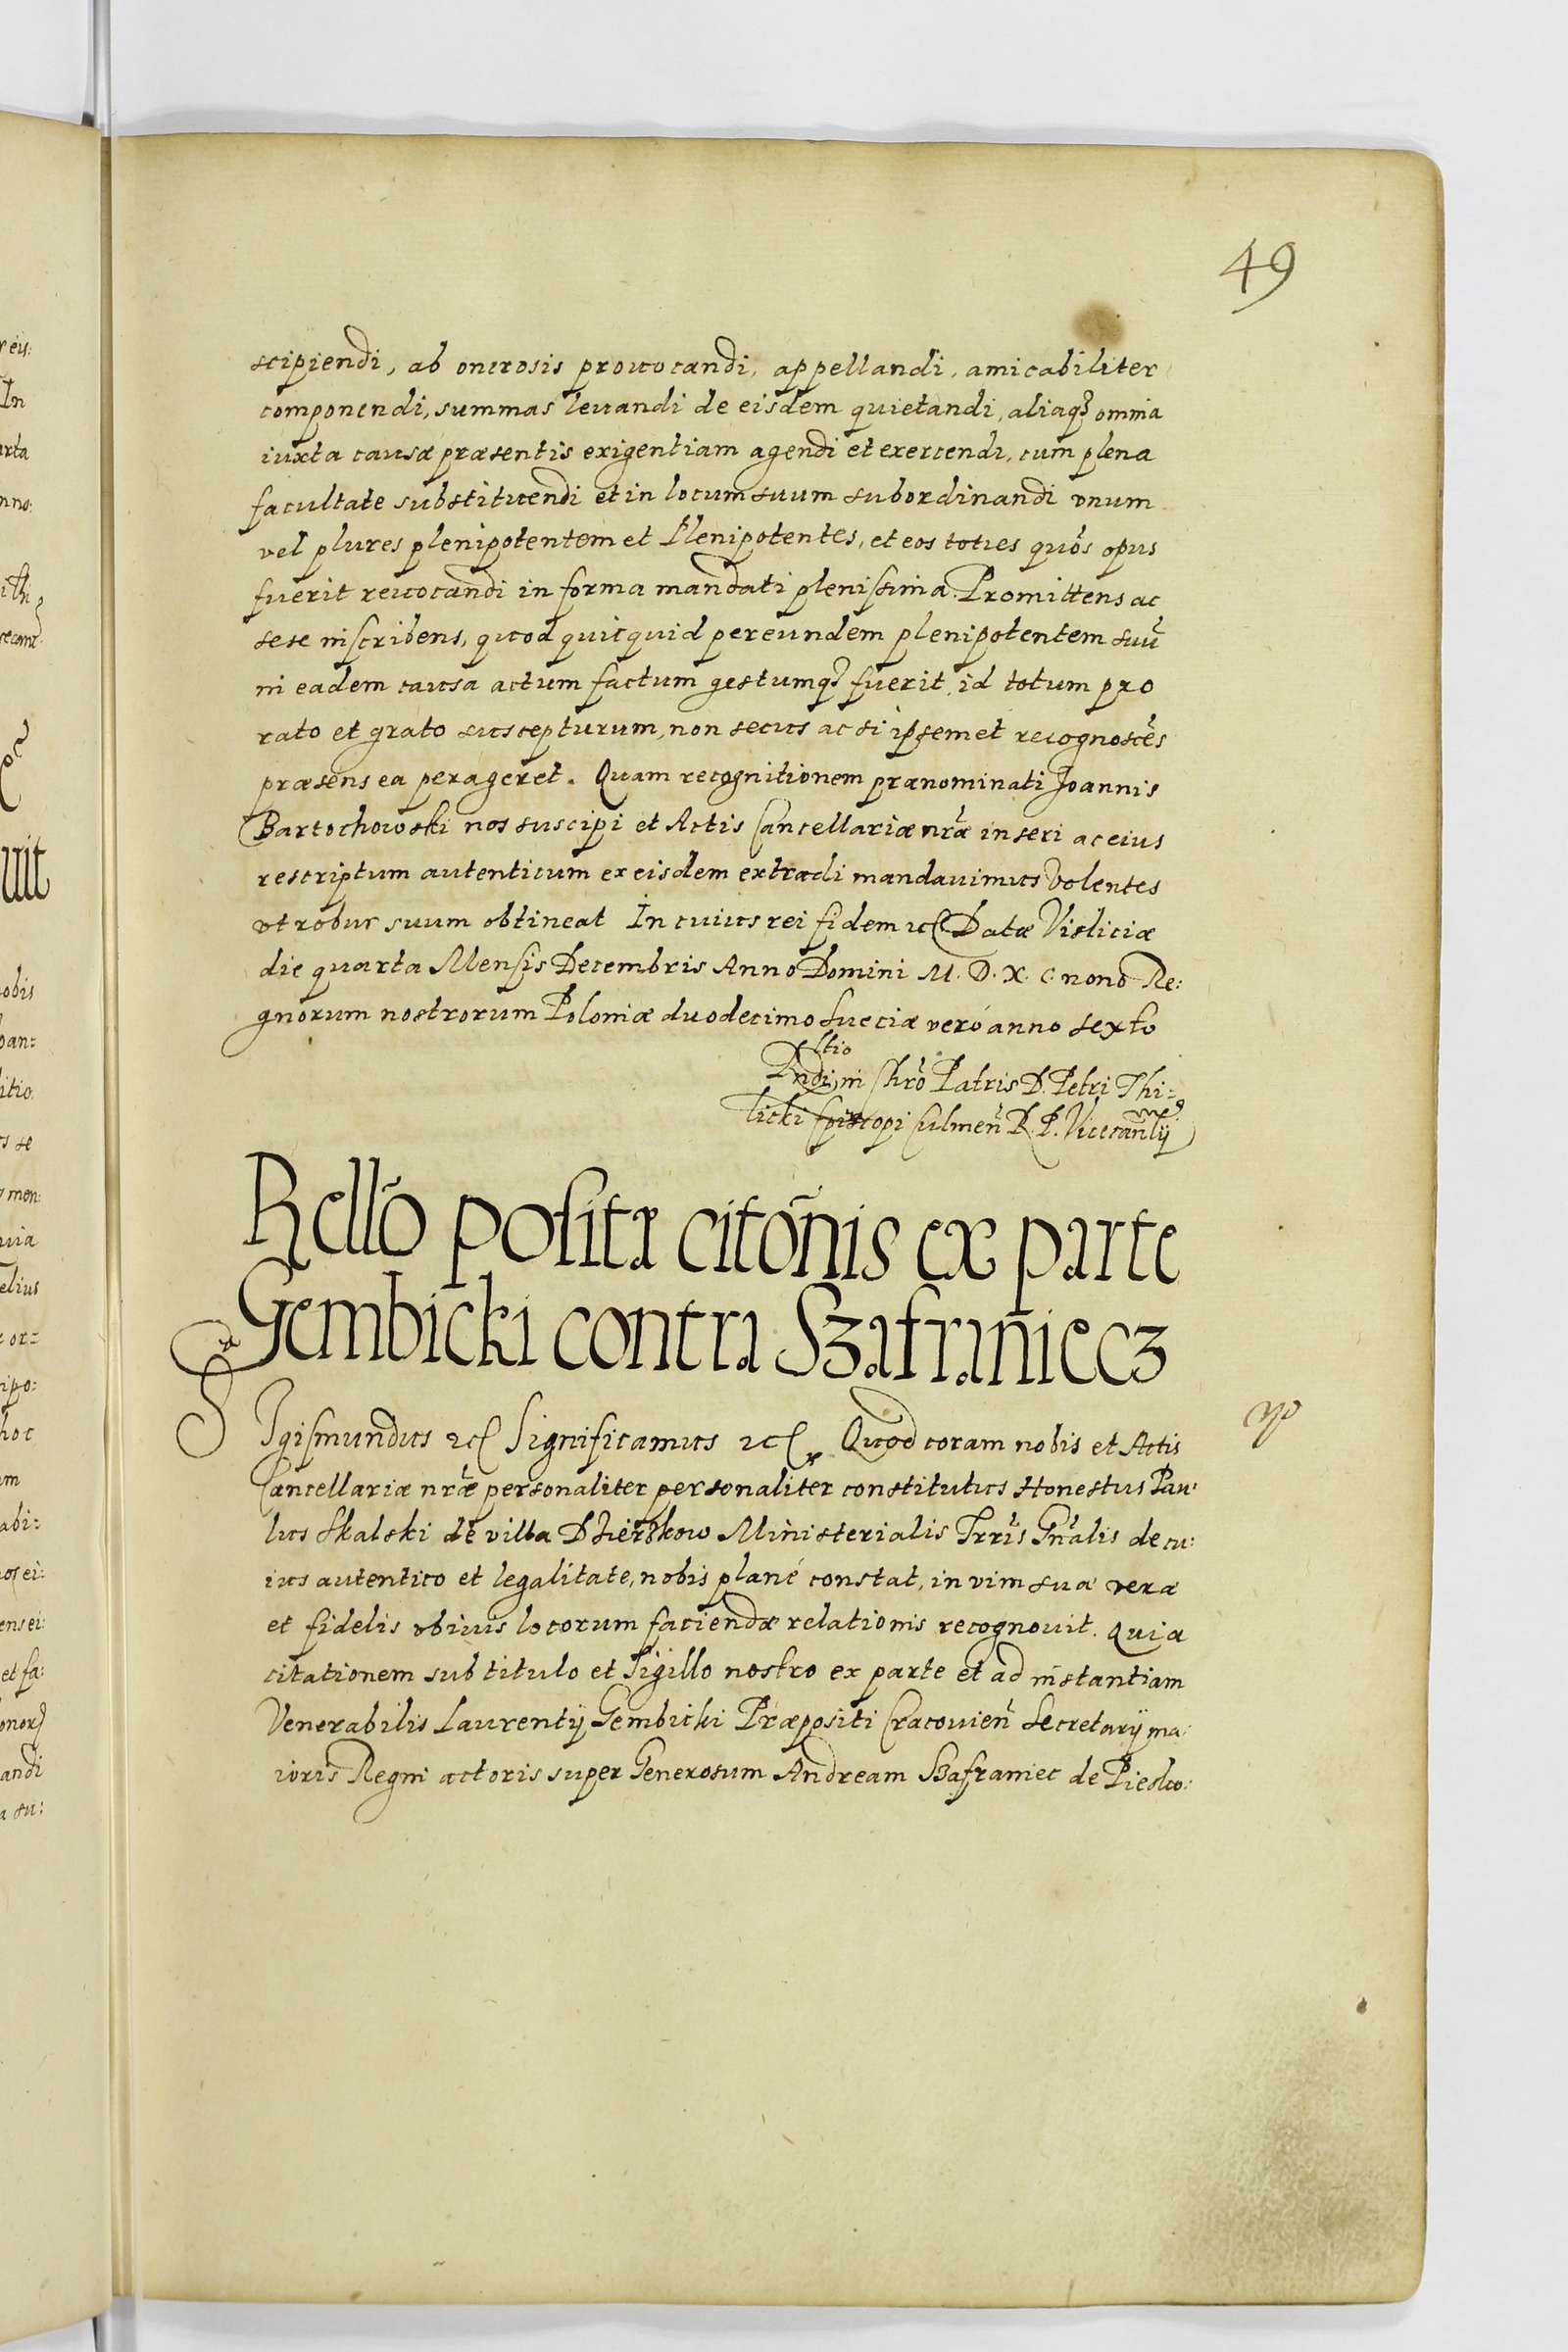 49
scipiendi, ab onerosis prouocandi, appellandi, amicabiliter
componendi, summas leuandi de eisdem quietandi, aliaqꝫ omnia
iuxta causæ præsentis exigentiam agendi et exercendi, cum plena
facultate substituendi et in locum suum subordinandi vnum
vel plures plenipotentem et Plenipotentes, et eos toties quo̅s opus
fuerit reuocandi in forma mandati plenissima. Promittens ac
sese inscribens, quod quicquid per eundem plenipotentem suu̅
in eadem causa actum factum gestumqꝫ fuerit, id totum pro
rato et grato suscepturum, non secus ac si ipsemet recognosce̅s
præsens ea perageret. Quam recognitionem prænominati Joannis
Bartochowski nos suscipi et Actis Cancellariæ nr̅æ inseri ac eius
rescriptum autenticum ex eisdem extradi mandauimus Volentes
vt robur suum obtineat In cuius rei fidem ⁊c Datæ Visliciæ
die quarta Mensis Decembris Anno Domini M. D. X. C. nono Re:
gnorum nostrorum Poloniæ duodecimo Sueciæ veró anno sexto
Rltio
Rndi, in Chr̅o Patris D. Petri Thi=
licki Episcopi Culmen̅ R. P. Vicecanlij
Rello̅ posita cito̅nis ex parte
Gembicki contra Szafraniecz
Sigismundus ⁊c Significamus ⁊c. Quod coram nobis et Actis
Cancellariæ nr̅æ personaliter personaliter constitutus Honestus Pau:
lus Skalski de villa Dzierzkow Ministerialis Trr̅is Gn̅alis de cu:
ius autentico et legalitate, nobis plané constat, in vim suæ veræ
et fidelis vbiuis locorum faciendæ relationis recognouit. Quia
citationem sub titulo et Sigillo nostro ex parte et ad instantiam
Venerabilis Laurentij Gembicki Præpositi Cracouien̅ Secretarij ma:
ioris Regni actoris super Generosum Andream Szafraniec de Piesko: